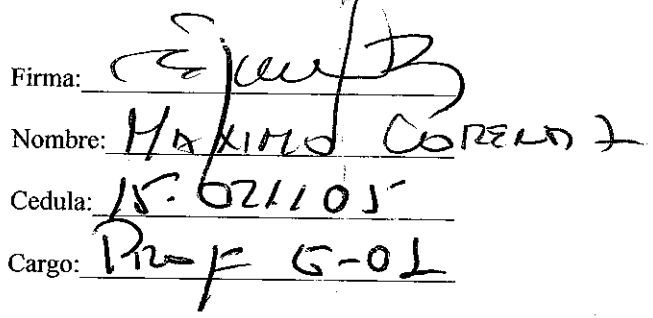 Firma:
Nombre: MAXIMO CORENA L
Cedula: 15.021105
Cargo: Prof G-01